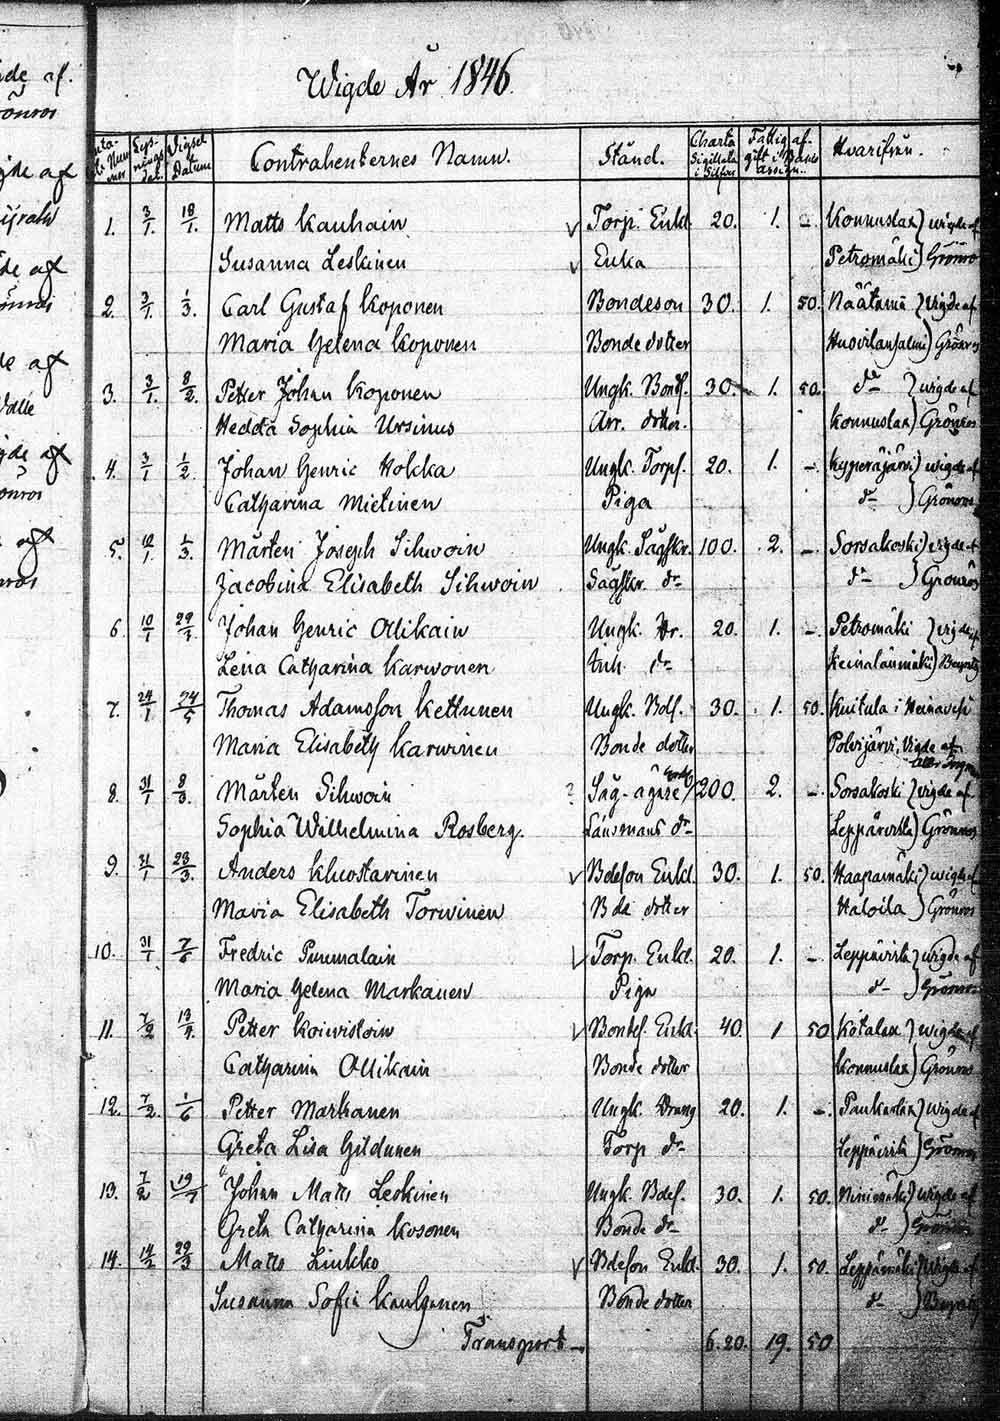 Wigde År 1846.
Lysnings dat. Wigsel Datum Contrahenternes Namn. Stånd. Charta Sigillata i Silfver Fattig af gift i Banco Assign. Hvarifrån.
1. 3/1. 18/1. Matts Kauhain Torp. Enkl. 20. 1. – Konnuslax wigde af
Susanna Leskinen Enka Petromäki Grönro
2. 3/1. 1/3. Carl Gustaf Koponen Bondeson 30. 1. 50. Näätämä wigde af
Maria Helena Koponen Bonde dotter Grönros
3. 3/1. 8/2. Petter Johan Koponen Ungk. Bonds. 30. 1. 50. do wigde af
Hedda Sophia Ursinus Arr. dotter. Konnuslax Grönros
4. 3/1 1/2. Johan Henric Hokka Ungk. Torps. 20. 1. – wigde af
Catharina Mietinen Piga d– Grönros
5. 10/1. 1/3. Mårten Joseph Sihwoin Ungk. 100. 2. – Sorsakoski wigde af
Jacobina Elisabeth Sihwoin d– d– Grönros
6. 10/1 29/3. Johan Henric Ollikain Ungk. 20. 1. – Petromäki wigde af
Lena Catharina Karwonen Inh. d–
7. 24/1 24/5 Thomas Adamsson Kettunen Ungk. Bds. 30. 1. 50. Kuitula i Heinavesi
Maria Elisabeth Karwinen Bonde dotter Wigde af
8. 31/1 8/3. Mårten Sihwoin Såg-ägare 200. 2. – Sorsakoski wigde af
Sophia Wilhelmina Rosberg. Länsmans d– Leppävirta Grönros
9. 31/1 23/3. Anders Khustavinen Bdeson Enkl. 30. 1. 50. Haapamäki wigde af
Maria Elisabeth Torwinen Bde dotter Haloila Grönros
10. 31/1 7/6 Fredric Puumalain Torp. Enkl. 20. 1. – Leppävirta wigde af
Maria Helena Markanen Piga d– Grönros
11. 7/2 13/4. Petter Koiwistoin Bondes. Enkl. 40. 1 50 Kotalax wigde af
Catharina Ollikain Bonde dotter Konnuslax Grönros
12. 7/2. 1/6 Petter Markanen Ungk. Dräng 20. 1. – Paukarlax wigde af
Greta Lisa Hildunen Torp d– Leppävirta Grönros
13. 7/2 19/7 Johan Matts Leskinen Ungk. Bdes. 30. 1. 50. Niinimäki wigde af
Greta Catharina Kosonen Bonde d– d– Grönros
14. 14/2 29/3 Matts Liukko Bdeson Enkl. 30. 1. 50. Leppämäki Wigde af
Susanna Sofia Kaulhanen Bonde dotter d–
Transport – 6.20. 19. 50